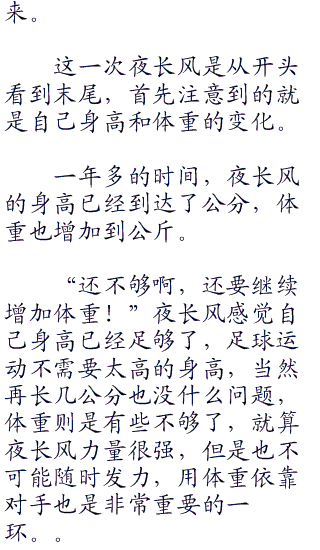 来。
这一次夜长风是从开头
看到末尾，首先注意到的就
是自己身高和体重的变化。
一年多的时间，夜长风
的身高已经到达了公分，体
重也增加到公斤。
“还不够啊，还要继续
增加体重！”夜长风感觉自
己身高已经足够了，足球运
动不需要太高的身高，当然
再长几公分也没什么问题，
体重则是有些不够了，就算
夜长风力量很强，但是也不
可能随时发力，用体重依靠
对手也是非常重要的一
环。。